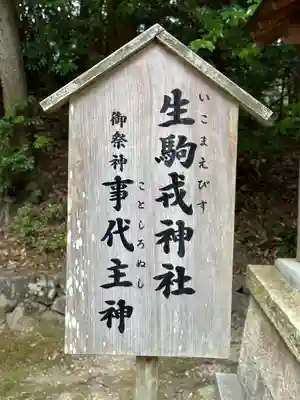 生駒戎神社
いこまえびす
御祭神 事代主神
ことしろぬし